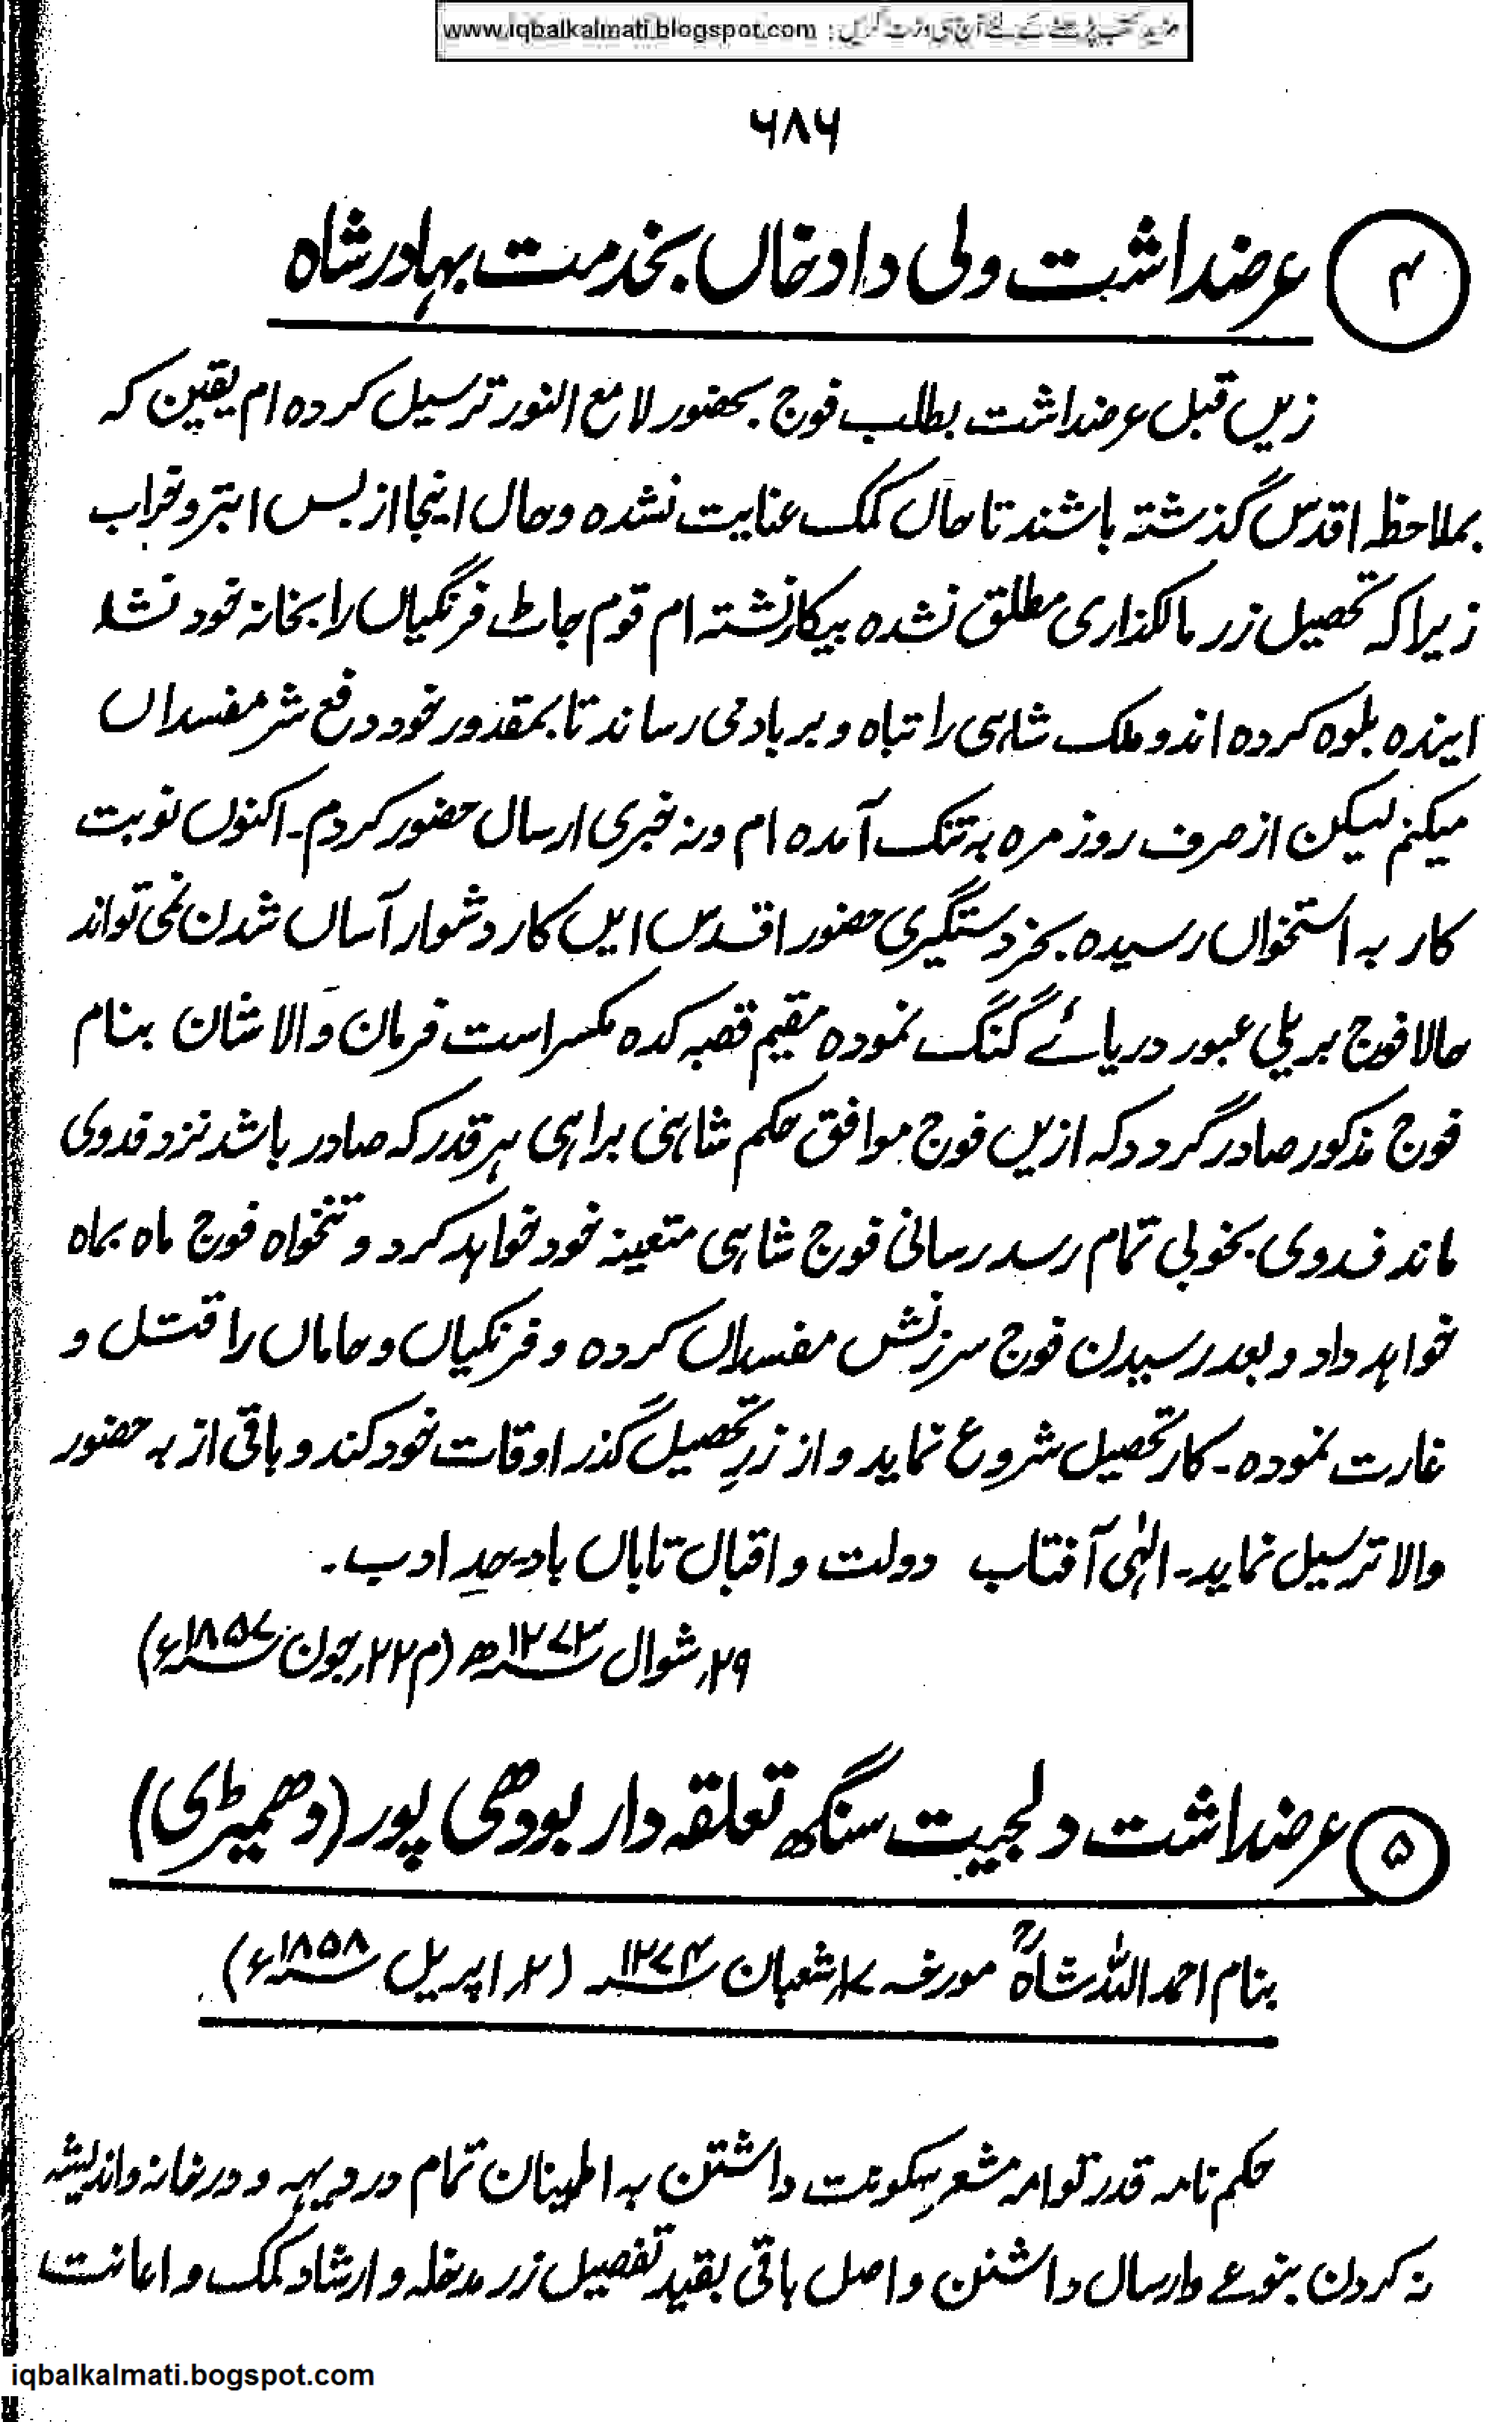 www.iqbalkalmati.blogspot.com : مزید کتب پڑھنے کے لئے آج ہی وزٹ کریں
۶۸۶
۴ عرضداشت ولی دادخاں بخدمت بہادر شاہ
زیں قبل عرضداشت بطلب فوج بحضور لامع النور ترسیل کردہ ام یقین کہ
بملاحظہ اقدس گذشتہ باشند تا حال کمک عنایت نشدہ و حال اینجا از بس ابتر و خراب
زیرا کہ تحصیل زر مالگذاری مطلق نشدہ بیکار نشتہ ام قوم جاٹ فرنگیاں را بخانہ خود نشا
ایندہ بلوہ کردہ اند و ملک شاہی را تباہ و بربادمی رساند تا بمقدور خود دفع شر مفسداں
میکنم لیکن از صرف روز مرہ بہ تنگ آمدہ ام ورنہ خبری ارسال حضور کردم۔ اکنوں نوبت
کار بہ استخواں رسیدہ بجز دستگیری حضور اقدس ایں کار دشوار آساں شدن نمی تواند
حالا فوج بریلی عبور دریائے گنگ نمودہ مقیم قصبہ کدہ مکسر است فرمان والا شان بنام
فوج مذکور صادر گردد کہ ازیں فوج موافق حکم شاہی براہی ہر قدر کہ صادر باشد نزد فدوی
ماند فدوی بخوبی تمام رسد رسانی فوج شاہی متعینہ خود خواہد کرد و تنخواہ فوج ماہ بماہ
خواہد داد و بعد رسیدن فوج سرزنش مفسداں کردہ و فرنگیاں و حاماں را قتل و
غارت نمودہ۔ کار تحصیل شروع نماید و از زرِ تحصیل گذر اوقات خود کند و باقی از بہ حضور
والا ترسیل نماید۔ الٰہی آفتاب دولت و اقبال تاباں باد۔ حدِ ادب۔
۲۹؍ شوال ۱۲۷۳ھ (م ۲۲؍ جون ۱۸۵۷ء)
۵ عرضداشت دلجیت سنگھ تعلقہ دار بودھی پور (دھمیڑی)
بنام احمد اللہ شاہؒ مورخہ ۱۷؍ شعبان ۱۲۷۴ (۲؍ اپریل ۱۸۵۸ء)
حکم نامہ قدر توامہ مشعر سکونت داشتن بہ اطمینان تمام در دیہہ و در خانہ و اندیشہ
نہ کردن بنوعے وارسال داشتن واصل باقی بقید تفصیل زر مدخلہ و ارشاد کمک و اعانت
iqbalkalmati.bogspot.com